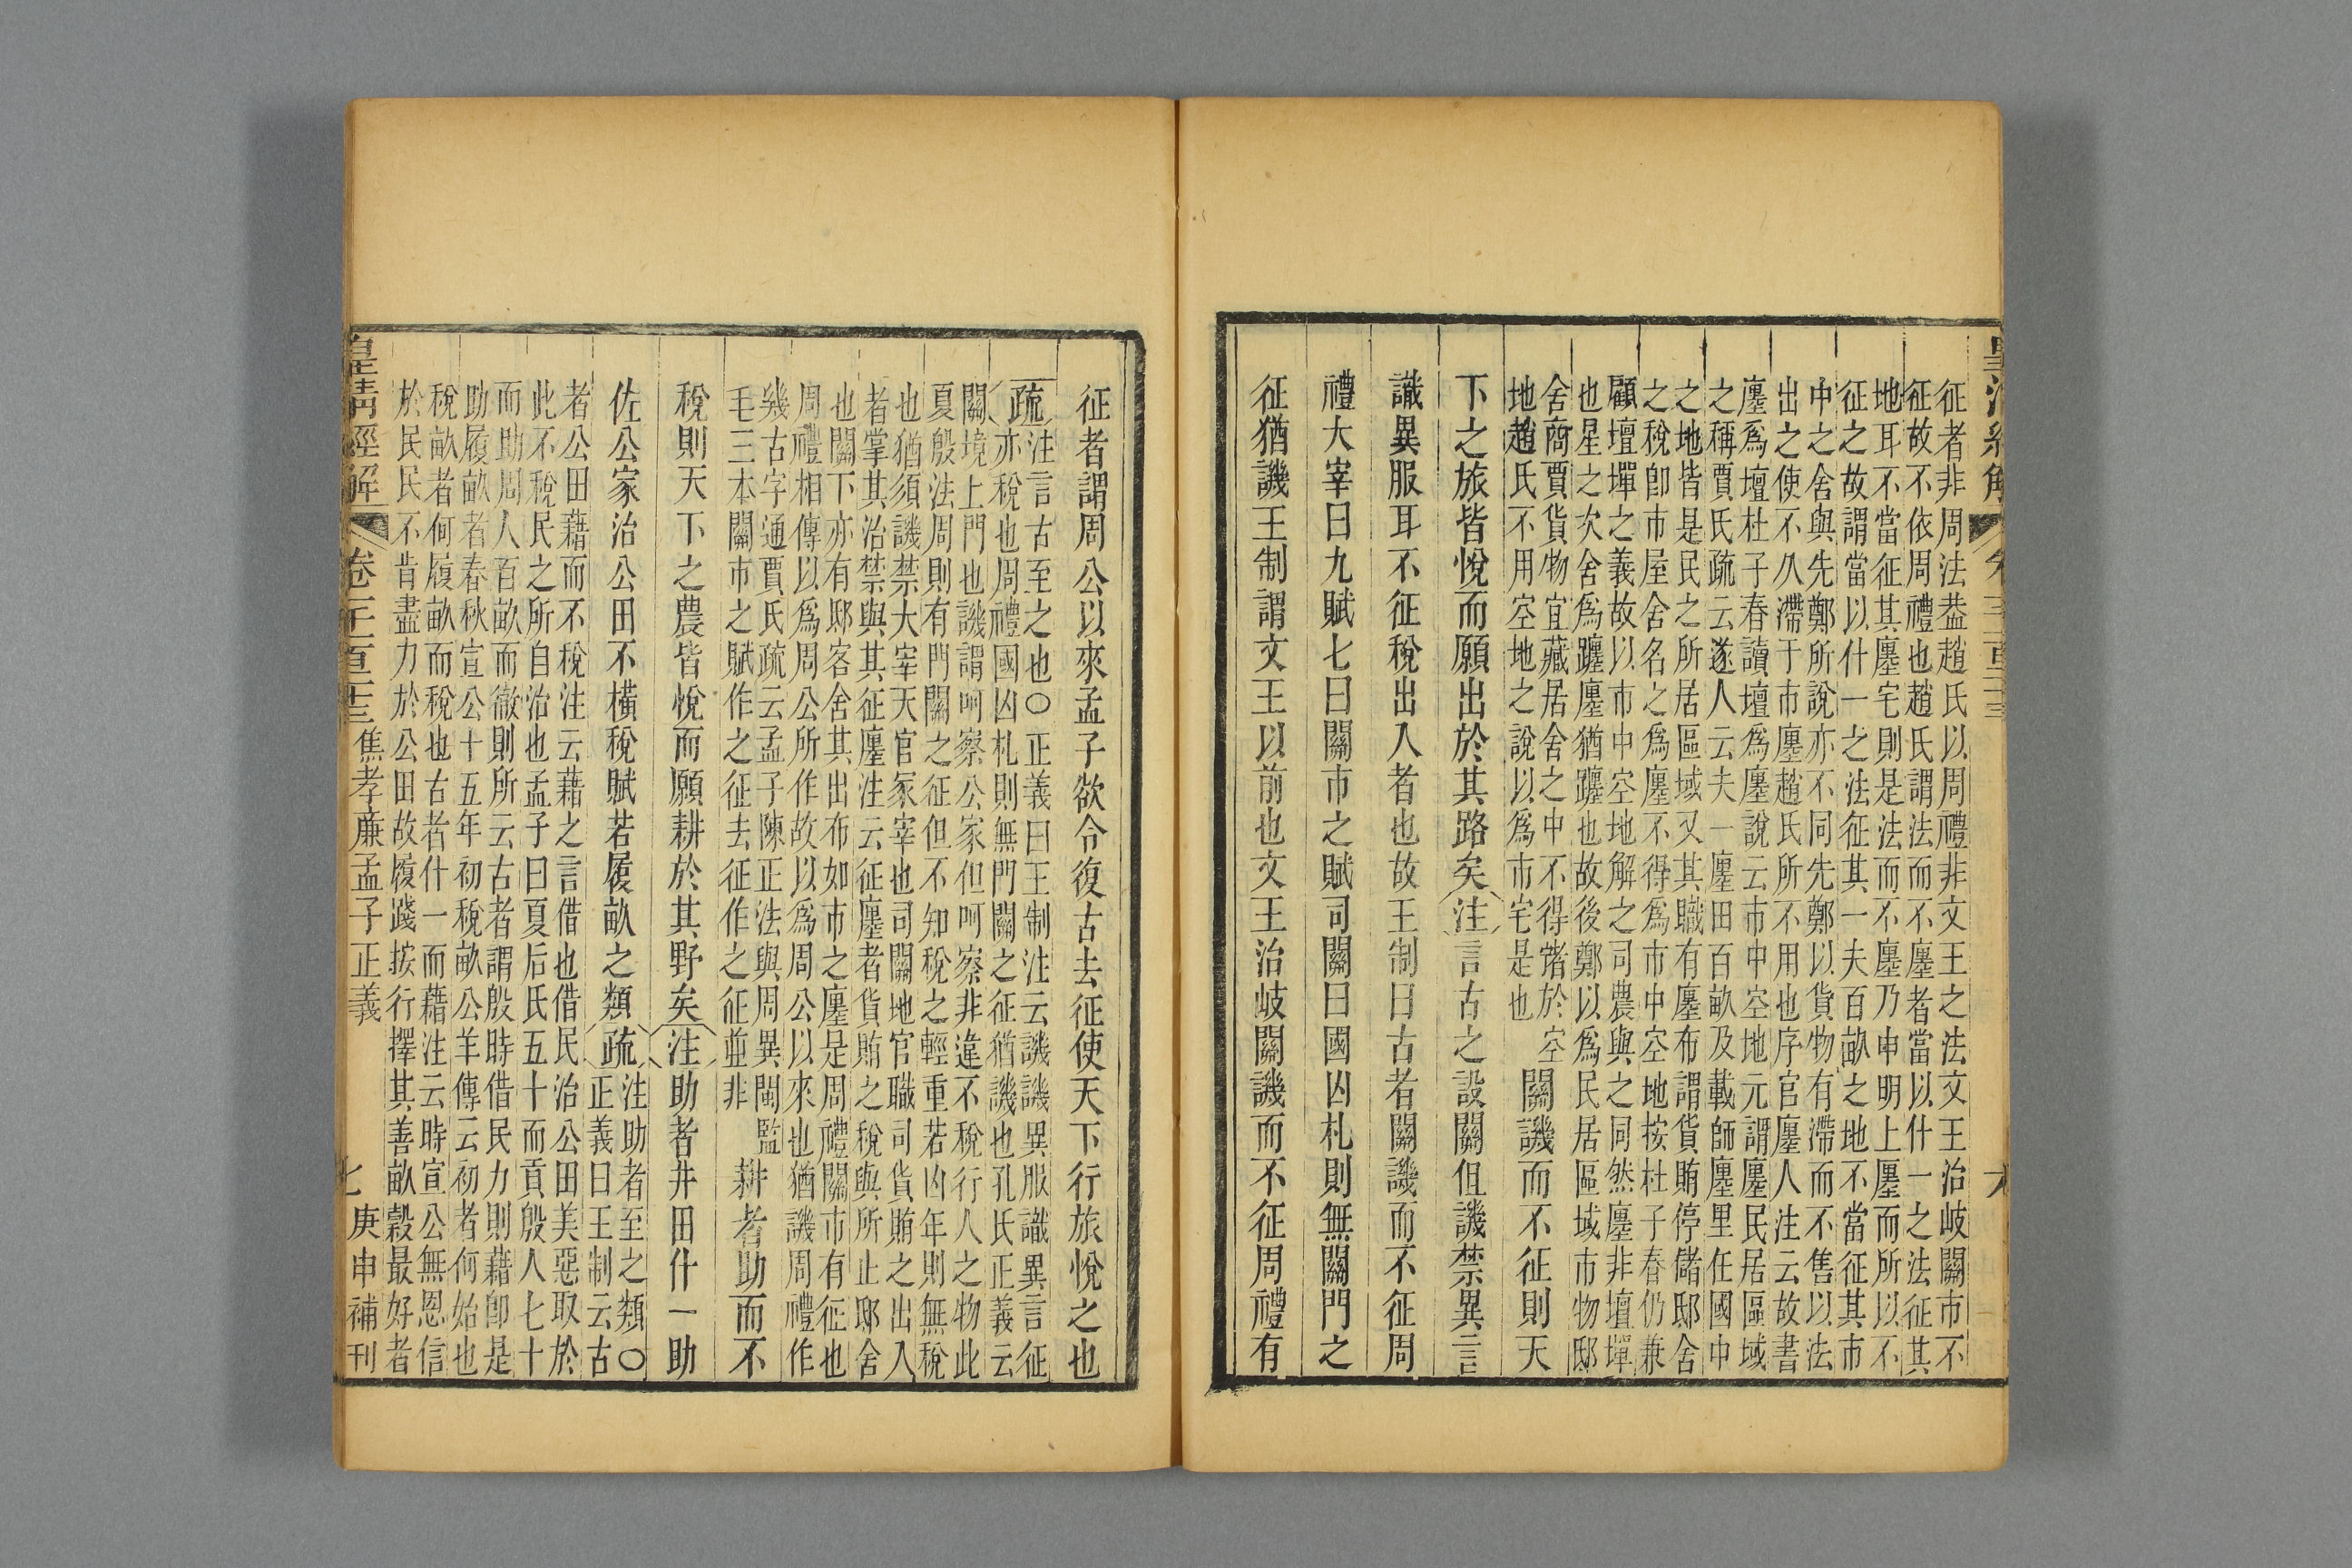 征者非周法葢趙氏以周禮非文王之法文王治岐關市不
征故不依周禮也趙氏謂法而不廛者當以什一之法征其
地耳不當征其廛宅則是法而不廛乃申明上廛而所以不
征之故謂當以什一之法征其一夫百畝之地不當征其市
中之舍與先鄭所說亦不同先鄭以貨物有滯而不售以法
出之使不久滯于市廛趙氏所不用也序官廛人注云故書
廛爲壇杜子春讀壇爲廛說云市中空地元謂廛民居區域
之稱賈氏疏云遂人云夫一廛田百畝及載師廛里任國中
之地皆是民之所居區域又其職有廛布謂貨賄停儲邸舍
之稅卽市屋舍名之爲廛不得爲市中空地按杜子春仍兼
顧壇墠之義故以市中空地解之司農與之同然廛非壇墠
也星之次舍爲躔廛猶躔也故後鄭以爲民居區域市物邸
舍商賈貨物宜藏居舍之中不得於空
地趙氏不用空地之說以爲市宅是也
關譏而不征則天
下之旅皆悅而願出於其路矣注言古之設關但譏禁異言
識異服耳不征稅出入者也故王制曰古者關譏而不征周
禮大宰曰九賦七曰關市之賦司關曰國凶札則無關門之
征猶譏王制謂文王以前也文王治岐關譏而不征周禮有
征者謂周公以來孟子欲令復古去征使天下行旅悅之也
疏注言古至之也○正義曰王制注云譏譏異服識異言征
亦稅也周禮國凶札則無門關之征猶譏也孔氏正義云
關境上門也譏謂呵察公家但呵察非違不稅行人之物此
夏殷法周則有門關之征但不知稅之輕重若凶年則無稅
也猶須譏禁大宰天官冢宰也司關地官職司貨賄之出入
者掌其治禁與其征廛注云征廛者貨賄之稅與所止邸舍
也關下亦有邸客舍其出布如市之廛是周禮關市有征也
周禮相傳以爲周公所作故以爲周公以來也猶譏周禮作
幾古字通賈氏疏云孟子陳正法與周異閩監
毛三本關市之賦作之征去征作之征並非
耕者助而不
稅則天下之農皆悅而願耕於其野矣注助者井田什一助
佐公家治公田不橫稅賦若履畝之類疏注助者至之類○
正義曰王制云古
者公田藉而不稅注云藉之言借也借民治公田美惡取於
此不稅民之所自治也孟子曰夏后氏五十而貢殷人七十
而助周人百畝而徹則所云古者謂殷時借民力則藉卽是
助履畝者春秋宣公十五年初稅畝公羊傳云初者何始也
稅畝者何履畝而稅也古者什一而藉注云時宣公無恩信
於民民不肯盡力於公田故履踐按行擇其善畝穀最好者
皇清經解 卷一千一百二十三 焦孝廉孟子正義 七 庚申補刊